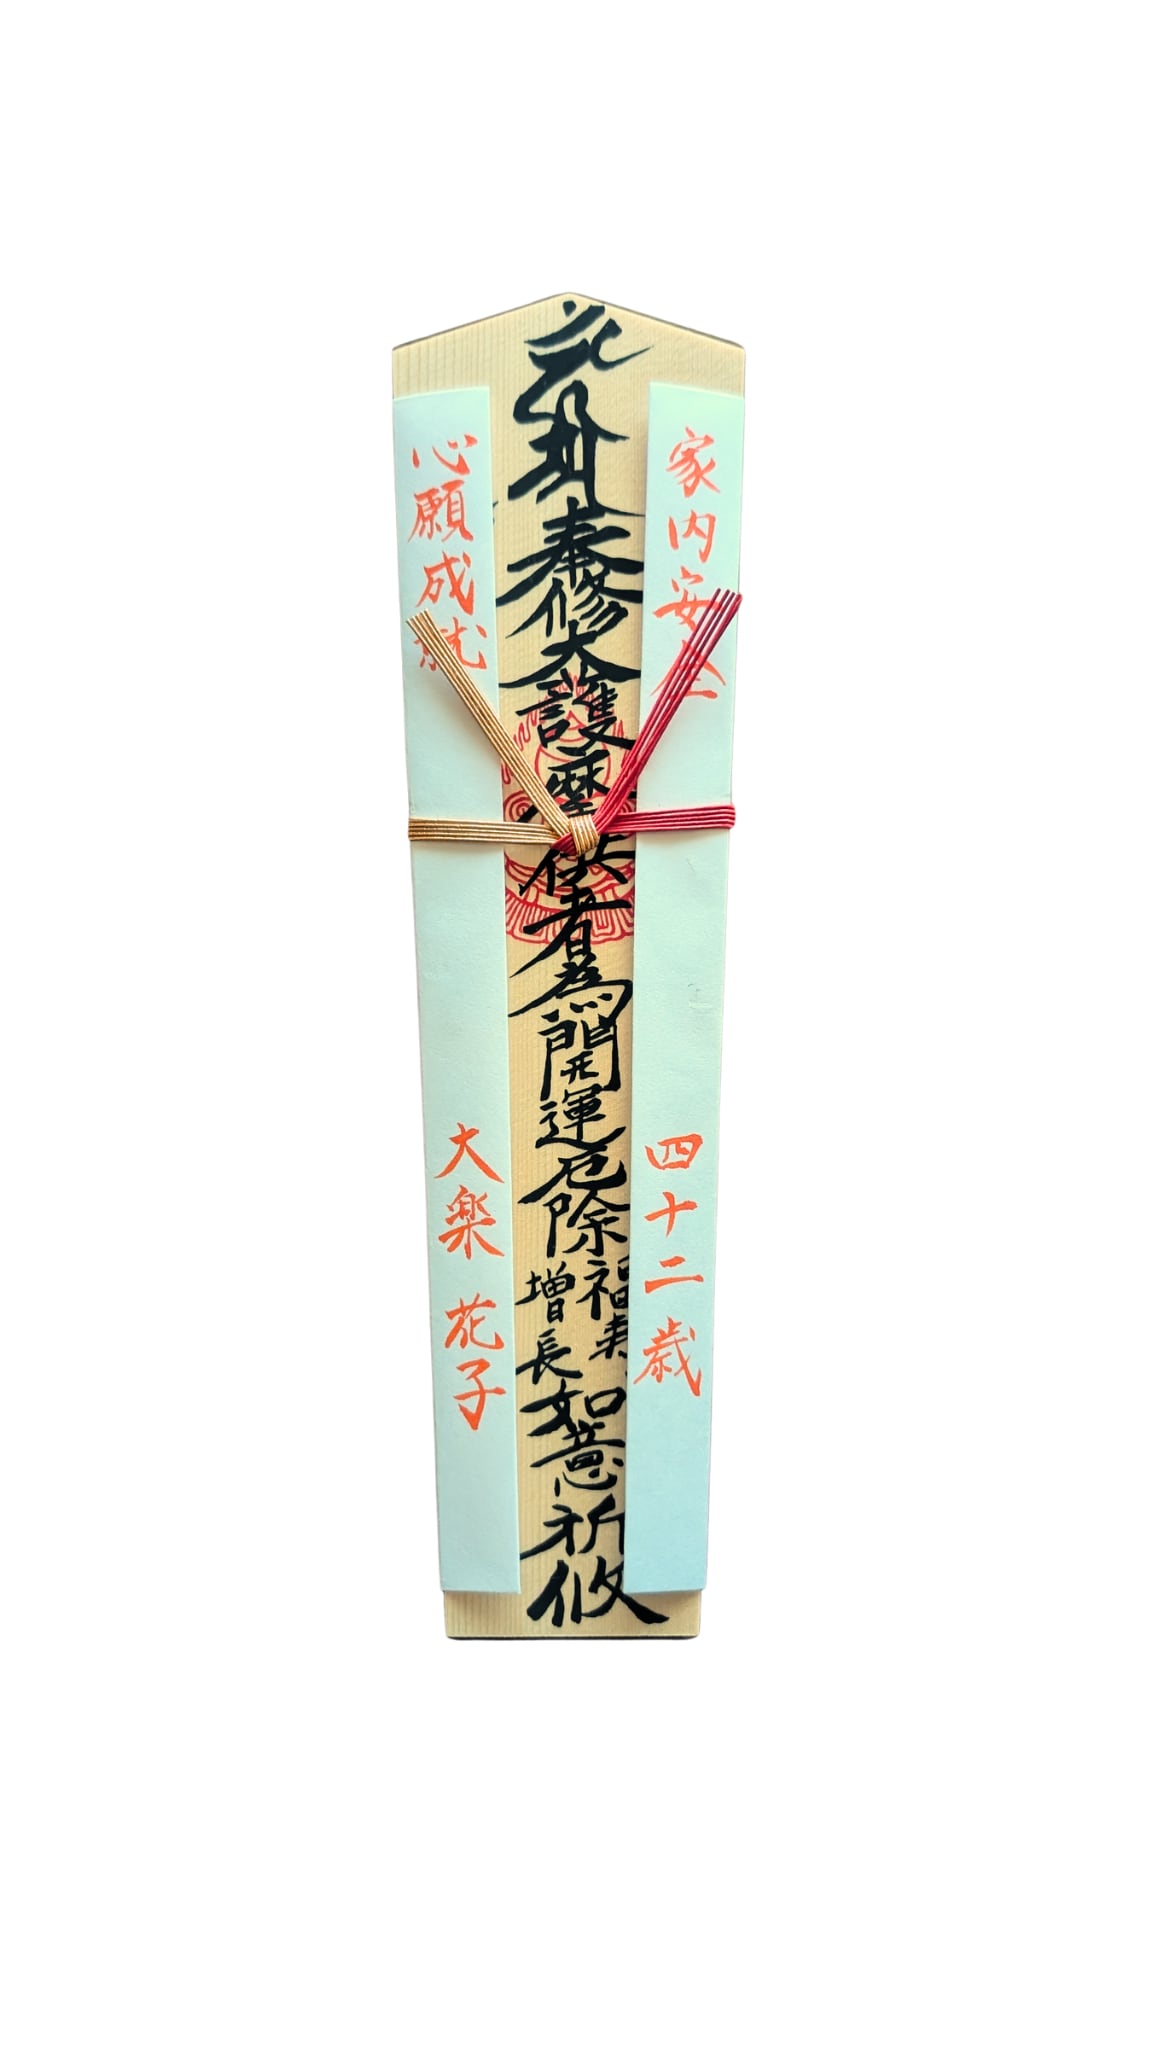 家内安全
四十二歳
奉修大護摩供者為開運厄除
福寿
増長
如意祈攸
心願成就
大楽 花子